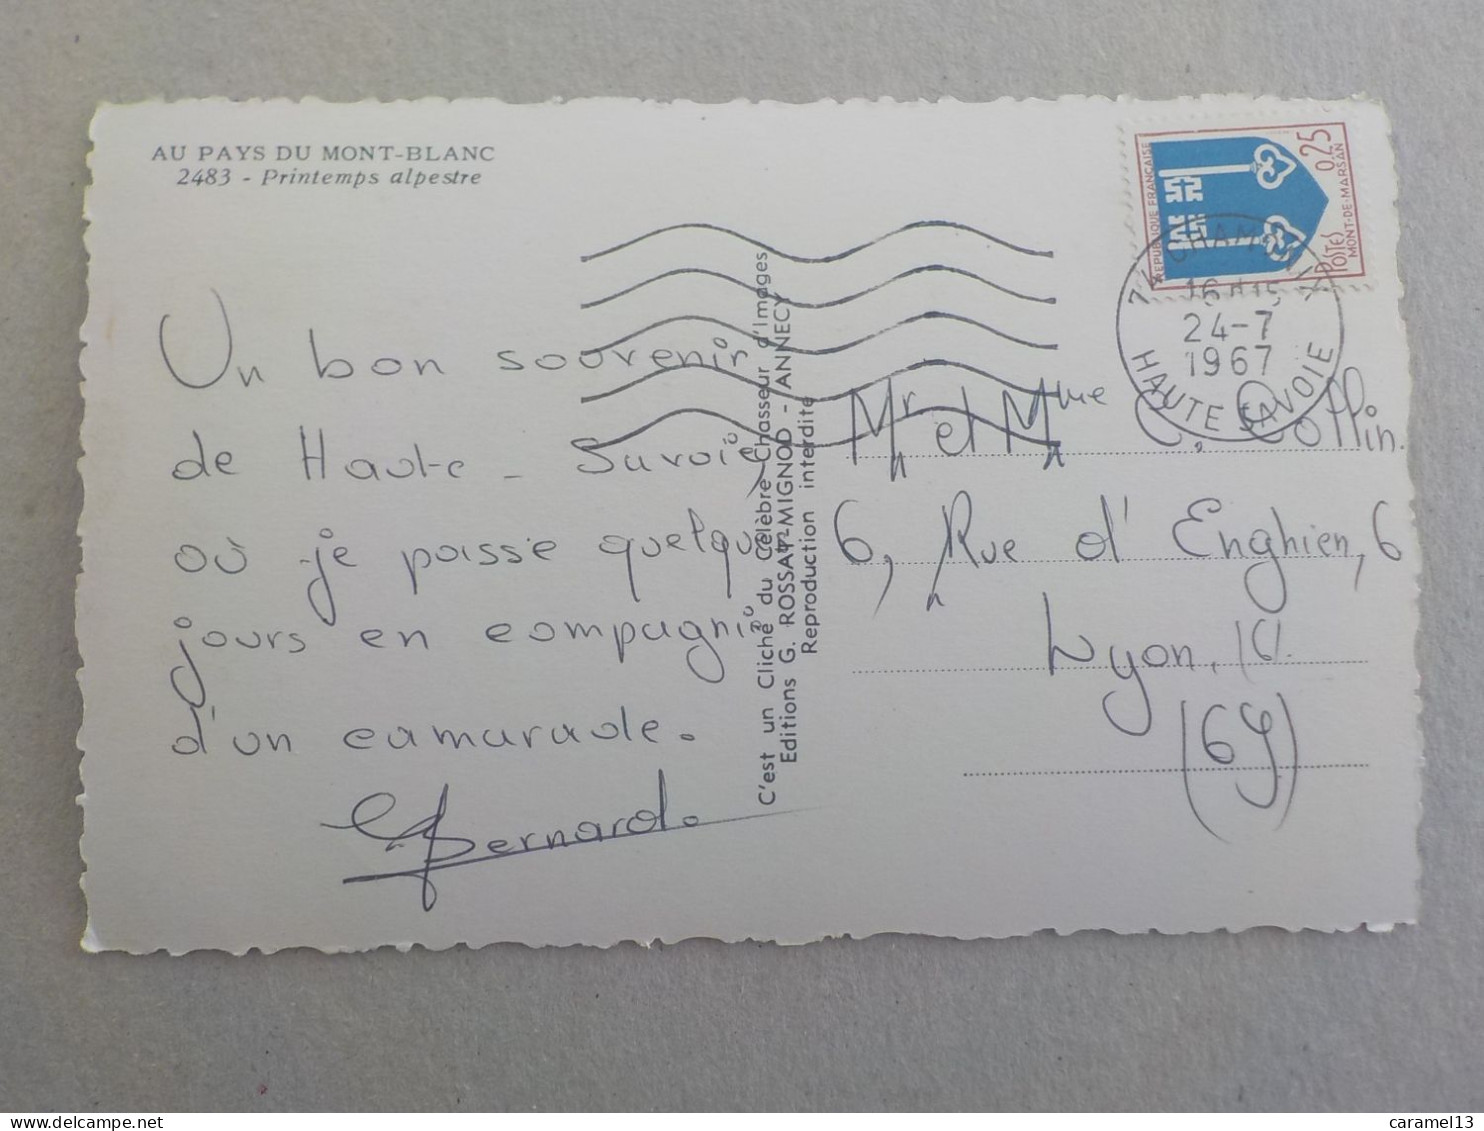 AU PAYS DU MONT-BLANC
2483 - Printemps alpestre
Un bon souvenir
de Haute - Savoie
où je passe quelques
jours en compagnie
d'un camarade.
Bernard.
C'est un Cliché du Célèbre Chasseur d'Images
Editions G. ROSSAT-MIGNOD - ANNECY
Reproduction interdite
REPUBLIQUE FRANÇAISE
0,25
POSTES
MONT-DE-MARSAN
74 CHAMONIX
16 H 15
24-7
1967
HAUTE SAVOIE
Mr et Mme C. Collin.
6, Rue d'Enghien, 6
Lyon,
(69)
caramel13